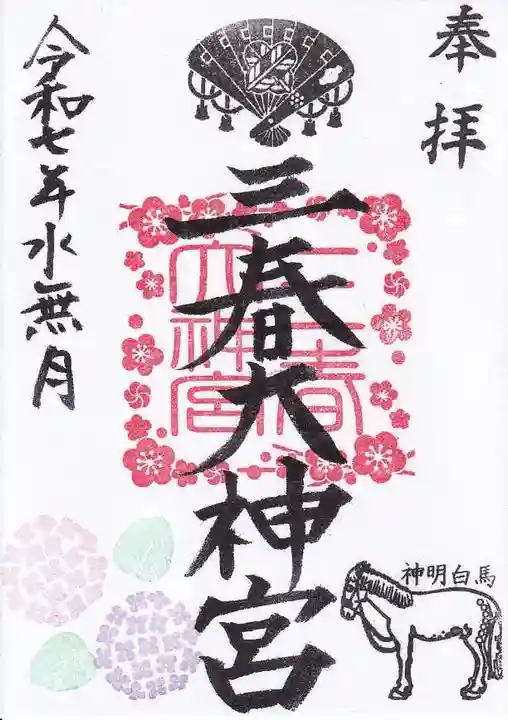 奉拝
三春大神宮
三春
大神宮
令和七年水無月
神明白馬